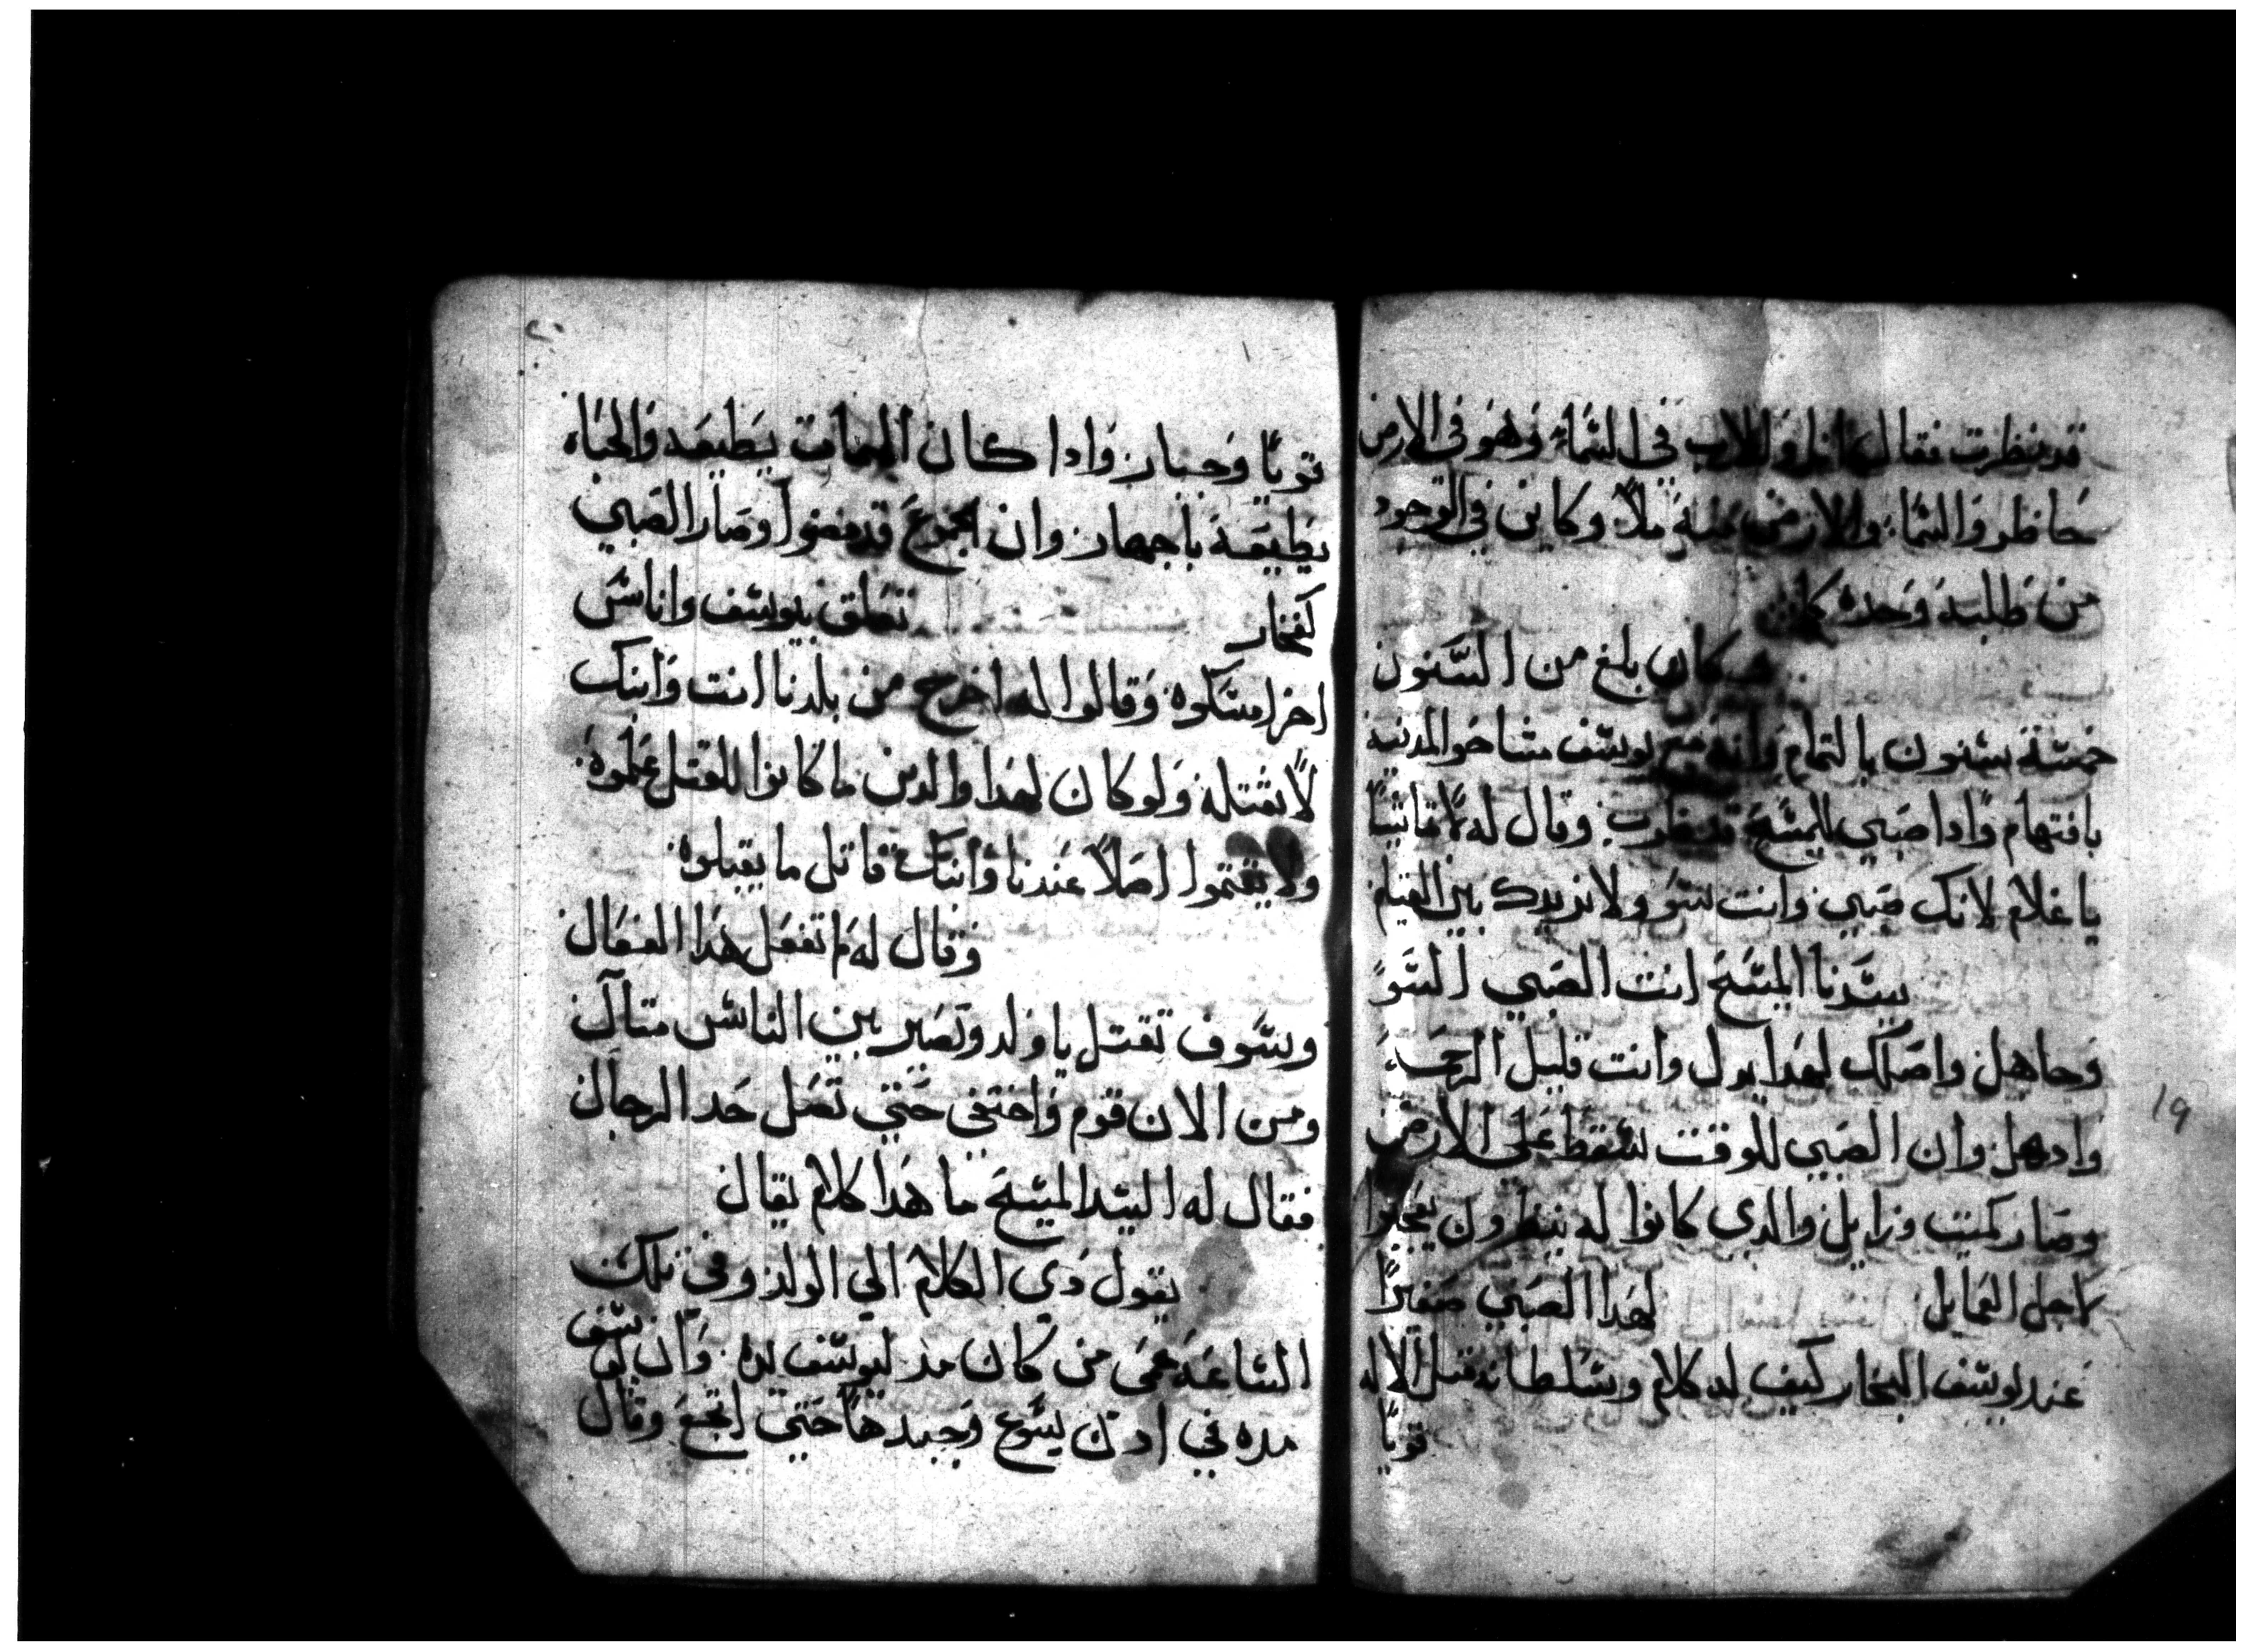 قد نظرت فقال قايل والاب في السّماء وهو في الارض
حاظر والسّماء والارض منه ملاً وكاين في الوجود
من طلبه وحده كان
كان بلغ من السّنون
خمسّة سّنون بالتمام وانه مع يوسّف مشا نحو المدينة
بافتهام واذا صبي للمسّيح قد نظرت وقال له لا تاتينا
يا غلام لانك صبي وانت سّو ولا نريدك بين
سّيّدنا المسّيح انت الصبي السّو
وجاهل واصلك لهدا يدل وانت قليل الرحمه
وادهل وان الصبي للوقت سّقط على الارض
وصار كميت وزايل والدي كانوا له ينظرون
لاجل الفعايل لهدا الصبي صغيراً
عند يوسّف النجار كيف له كلام وسّلطانه مثل الاله
قوياً
قوياً وجبار واداكان الممات يطيعه والحياه
يطيعه باجهار وان الجموع قد مضوا وصار الصبي
كفخار تعلق بيوسّف واناسّ
اخر امسّكوه وقالوا له اخرج من بلدنا انت وابنك
لا نقتله ولو كان لهدا والدين ما كانوا للقتل علموه
ولا يقتموا اصلاً عندنا وابنك قاتل ما يقبلوه
وقال له لم تفعل هدا الفعال
وسّوف تقتل يا ولد وتصير بين الناسّ متال
ومن الان قوم واختفي حتي تصل حد الرجال
فقال له السّيد المسّيح ما هدا كلام يقال
يقول دي الكلام الي الولد وفي تلك
السّاعه عمى من كان مد ليوسّف يده وان يوسّف
مده في ادن يسّوع وجبدها حتي اتجع وقال